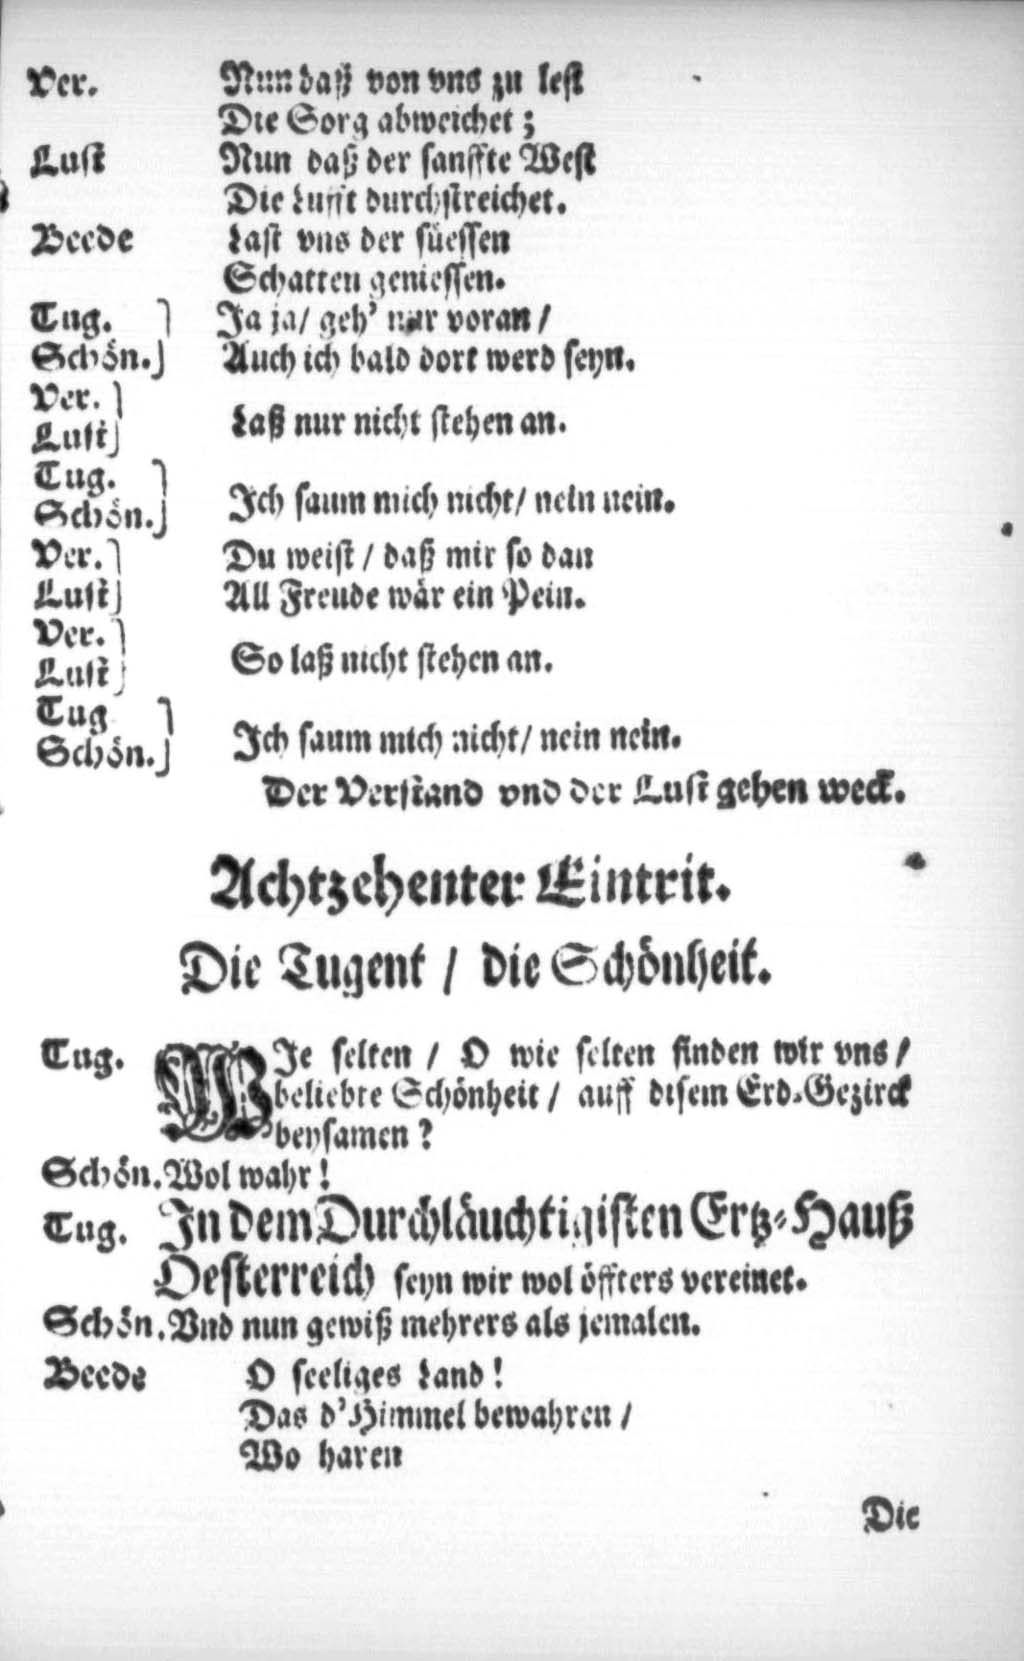 Ver. Nun daß von vns zu lest
Die Sorg abweichet;
Lust Nun daß der sanffte West
Die Lufft durchstreichet.
Beede Last vns der süessen
Schatten geniessen.
Tug. } Ja ja/ geh' nur voran /
Schön. } Auch ich bald dort werd seyn.
Ver. }
Lust } Laß nur nicht stehen an.
Tug. }
Schön. } Ich saum mich nicht/ nein nein.
Ver. } Du weist / daß mir so dan
Lust } All Freude wär ein Pein.
Ver. }
Lust } So laß nicht stehen an.
Tug }
Schön. } Ich saum mich nicht/ nein nein.
Der Verstand vnd der Lust gehen weck.
Achtzehenter Eintrit.
Die Tugent / die Schönheit.
Tug. WJe selten / O wie selten finden wir vns /
beliebte Schönheit / auff disem Erd-Gezirck
beysamen ?
Schön. Wol wahr !
Tug. In dem Durchläuchtigisten Ertz-Hauß
Oesterreich seyn wir wol öffters vereinet.
Schön. Vnd nun gewiß mehrers als jemalen.
Beede O seeliges Land !
Das d'Himmel bewahren /
Wo haren
Die